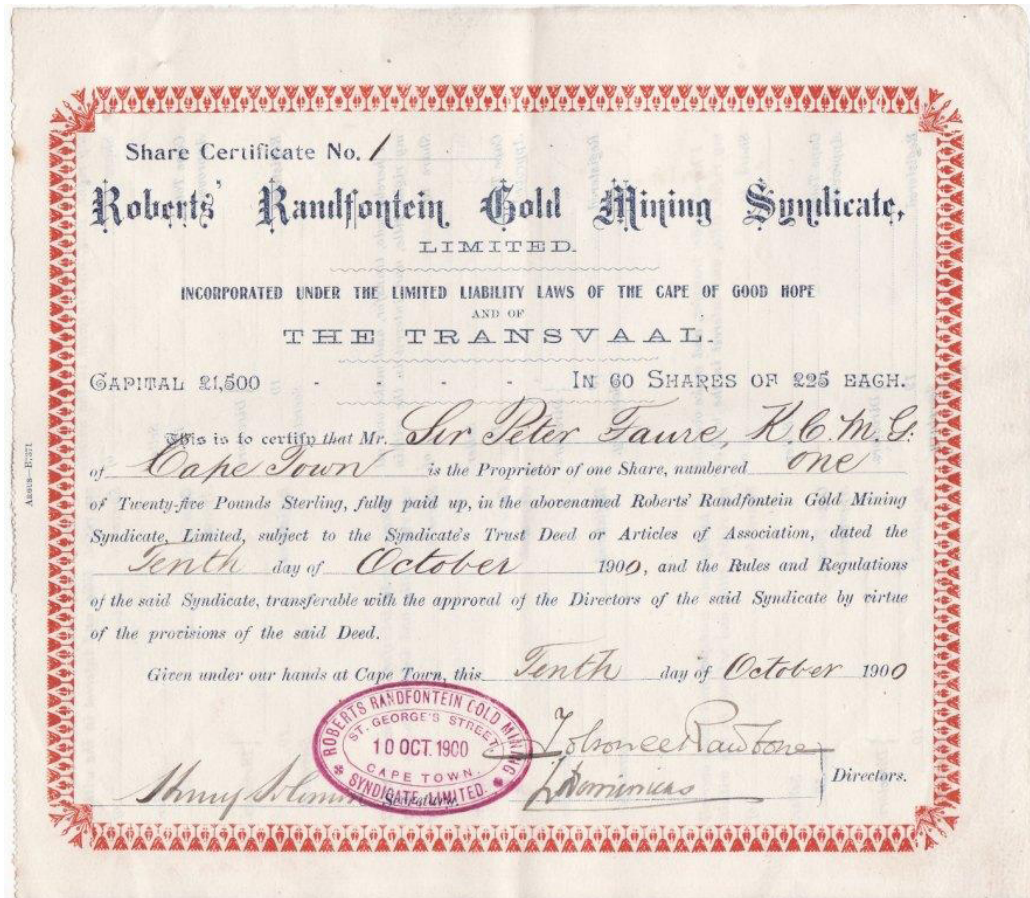 Share Certificate No. 1
Roberts' Randfontein Gold Mining Syndicate,
LIMITED.
INCORPORATED UNDER THE LIMITED LIABILITY LAWS OF THE CAPE OF GOOD HOPE
AND OF
THE TRANSVAAL.
CAPITAL £1,500 - - - - - IN 60 SHARES OF £25 EACH.
This is to certify that Mr. Sir Peter Faure, K.C.M.G.
of Cape Town is the Proprietor of one Share, numbered one
of Twenty-five Pounds Sterling, fully paid up, in the abovenamed Roberts' Randfontein Gold Mining
Syndicate, Limited, subject to the Syndicate's Trust Deed or Articles of Association, dated the
Tenth day of October 1900, and the Rules and Regulations
of the said Syndicate, transferable with the approval of the Directors of the said Syndicate by virtue
of the provisions of the said Deed.
Given under our hands at Cape Town, this Tenth day of October 1900
ROBERTS RANDFONTEIN GOLD MINING
ST. GEORGE'S STREET,
10 OCT. 1900
CAPE TOWN.
SYNDICATE LIMITED.
Secretary.
Directors.